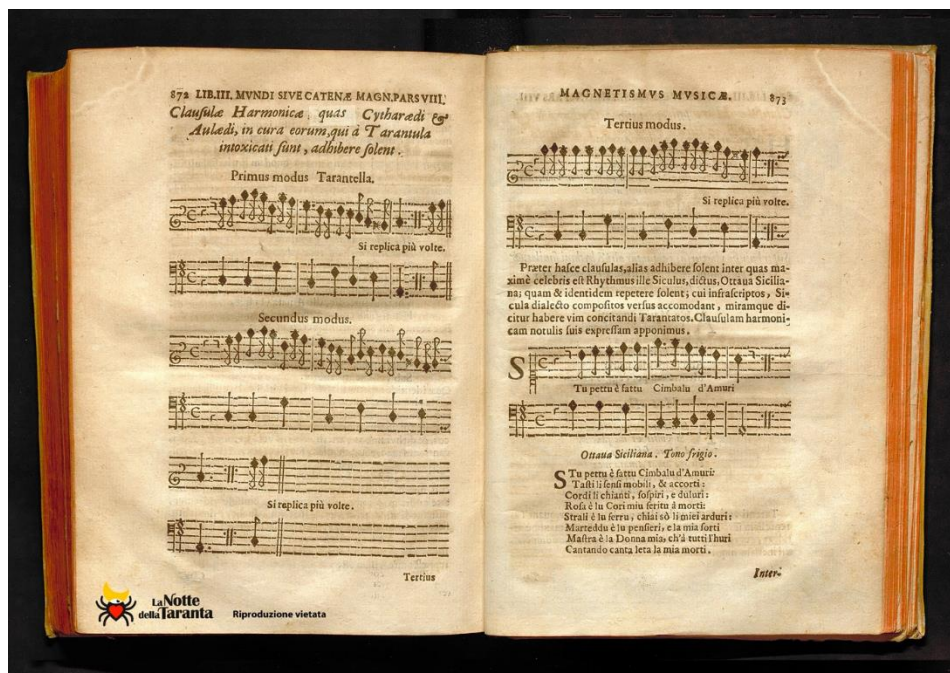 872 LIB.III. MVNDI SIVE CATENÆ MAGN.PARS VIII.
Clausulæ Harmonicæ, quas Cytharædi &
Aulædi, in cura eorum, qui à Tarantula
intoxicati sunt, adhibere solent.
Primus modus Tarantella.
Si replica più volte.
Secundus modus.
Si replica più volte.
Tertius
La Notte
della Taranta
Riproduzione vietata
MAGNETISMVS MVSICÆ. 873
Tertius modus.
Si replica più volte.
Præter hasce clausulas, alias adhibere solent inter quas ma-
ximè celebris est Rhythmus ille Siculus, dictus, Ottaua Sicilia-
na; quam & identidem repetere solent; cui infrascriptos, Si-
cula dialecto compositos versus accomodant, miramque di-
citur habere vim concitandi Tarantatos. Clausulam harmoni-
cam notulis suis expressam apponimus.
S
Tu pettu è fattu Cimbalu d'Amuri
Ottaua Siciliana. Tono frigio.
STu pettu è fattu Cimbalu d'Amuri:
Tasti li sensi mobili, & accorti:
Cordi li chianti, sospiri, e duluri:
Rosa è lu Cori miu feritu à morti:
Strali è lu ferru, chiai sò li miei arduri:
Marteddu è lu pensieri, e la mia sorti
Mastra è la Donna mia, ch'à tutti l'huri
Cantando canta leta la mia morti.
Inter-